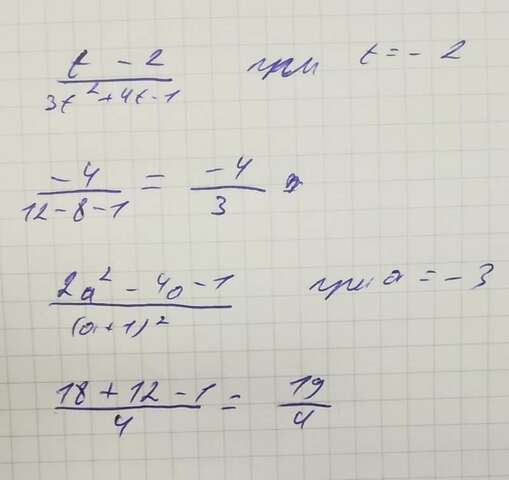 t - 2 / 3t² + 4t - 1 при t = - 2
-4 / 12 - 8 - 1 = -4 / 3
2a² - 4a - 1 / (a + 1)² при a = - 3
18 + 12 - 1 / 4 = 19 / 4